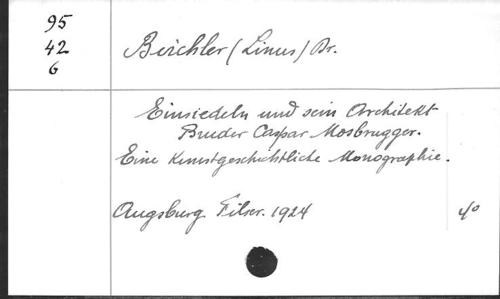 95
42
6
Birchler (Linus) Dr.
Einsiedeln und sein Architekt
Bruder Caspar Mosbrugger.
Eine kunstgeschichtliche Monographie.
Augsburg. Filser. 1924
4°